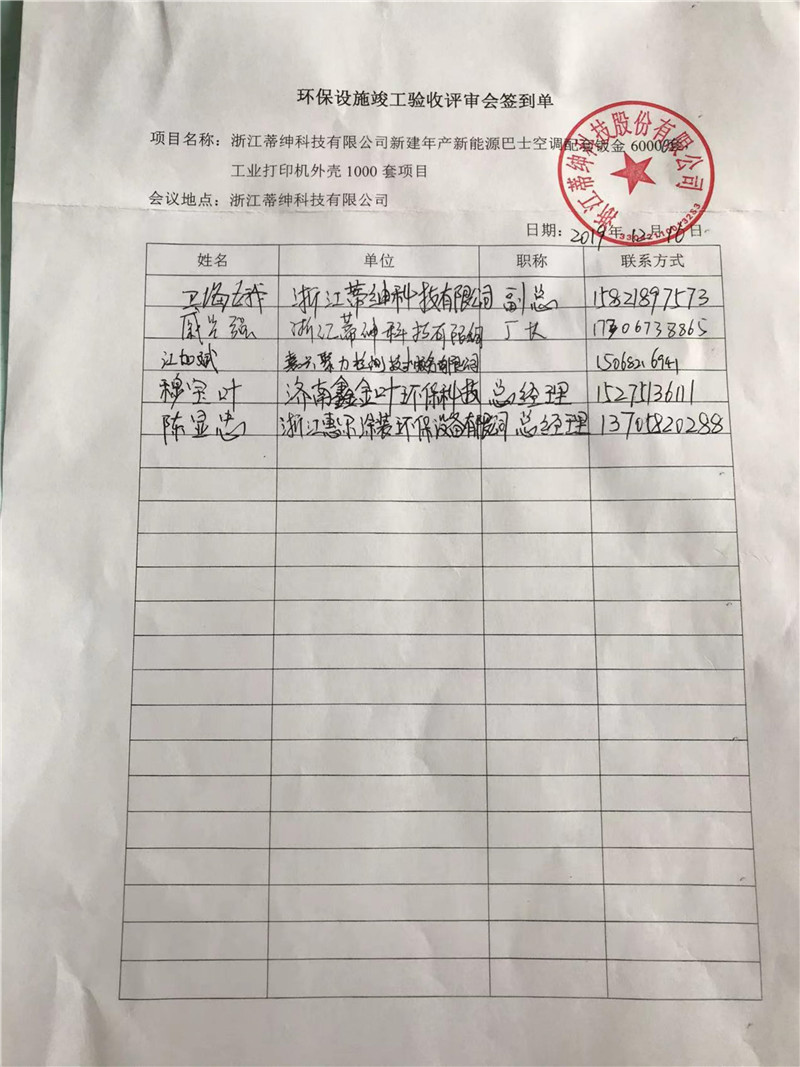 环保设施竣工验收评审会签到单
项目名称：浙江蒂绅科技有限公司新建年产新能源巴士空调配套钣金 6000套
工业打印机外壳 1000 套项目
会议地点：浙江蒂绅科技有限公司
浙江蒂绅科技股份有限公司
日期：2019年12月16日
姓名 单位 职称 联系方式
浙江蒂绅科技有限公司 副总 15821897573
强 浙江蒂绅科技有限公司 厂长 17306738865
江加斌 嘉兴聚力检测技术服务有限公司 15068216941
穆宝叶 济南鑫金叶环保科技 总经理 15275136111
陈显忠 浙江惠尔涂装环保设备有限公司 总经理 13705820288